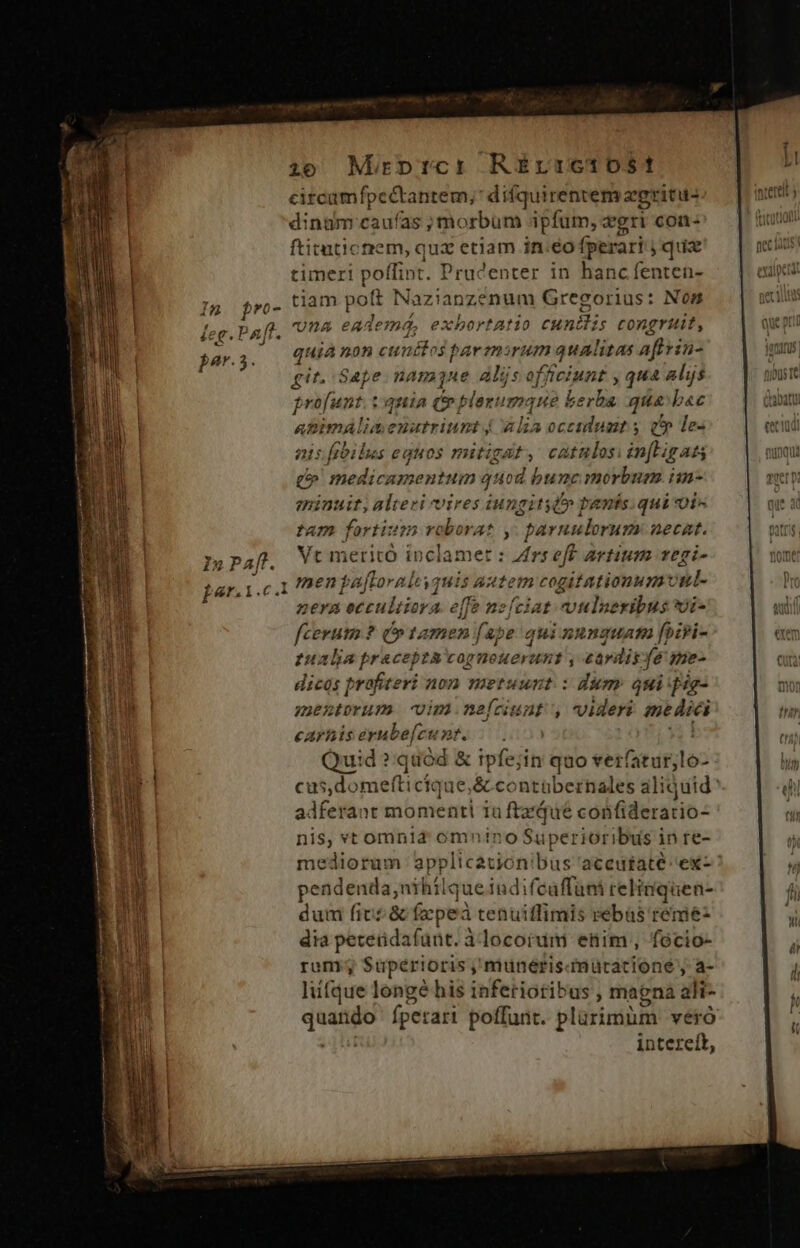 20 Medici Religiosi
circumſpectantem; diſquirentem ægritu-
dinum cauſas; morbum ipſum, ægri con-
ſtitutionem, quæ etiam in eo ſperari, quæ
timeri poſſint. Prudenter in hanc ſenten-
In pro- tiam poſt Nazianzenum Gregorius: Non
leg. Paſt. vna eademq́, exhortatio cunctis congruit,
par.3. quia non cunctos par morum qualitas aſtrin-
git. Sæpe namque alijs officiunt, quæ alijs
proſunt: quia & plerumque herba quæ hæc
animalia enutriunt, alia occidunt; & le-
nis ſibilus equos mitigat, catulos inſtigat;
& medicamentum quod hunc morbum im-
minuit, alteri vires iungit; & panis qui vi-
tam fortium roborat, paruulorum necat.
In Paſt. Vt meritò inclamet: Ars eſt artium regi-
par.1.c.1 men paſtorale, quis autem cogitationum vul-
nera occultiora eſſe neſciat vulneribus vi-
ſcerum? & tamen ſæpe qui nunquam ſpiri-
tualia præcepta cognouerunt, cordis ſe me-
dicos profiteri non metuunt: dum qui pig-
mentorum vim neſciunt, videri medici
carnis erubeſcunt.
Quid? quòd & ipſe, in quo verſatur, lo-
cus, domeſticíque, & contubernales aliquid
adferant momenti iuſtæque conſideratio-
nis, vt omnia omnino Superioribus in re-
mediorum applicationibus accuratè ex-
pendenda, nihilque indiſcuſſum relinquen-
dum ſit: & ſæpe à tenuiſſimis rebus reme-
dia petenda ſunt. à locorum enim, ſocio-
rum, Superioris, muneris mutatione, a-
liiſque longè his inferioribus, magna ali-
quando ſperari poſſunt. plurimùm verò
intereſt,